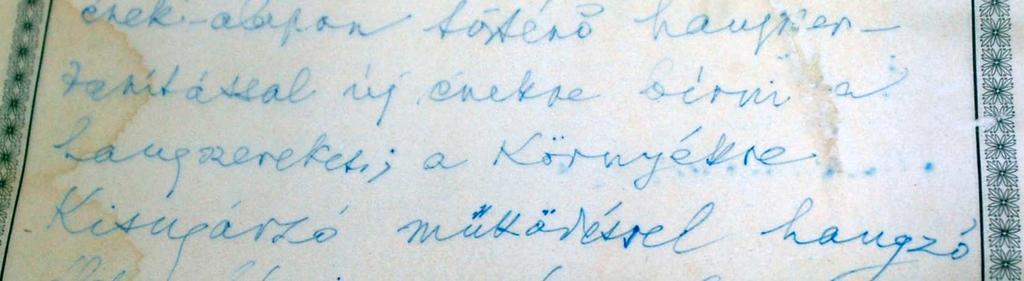 ének-alapon történő hangszer-
tanítással új énekre bírni a
hangszereket is; a környékre
kisugárzó működéssel hangzó